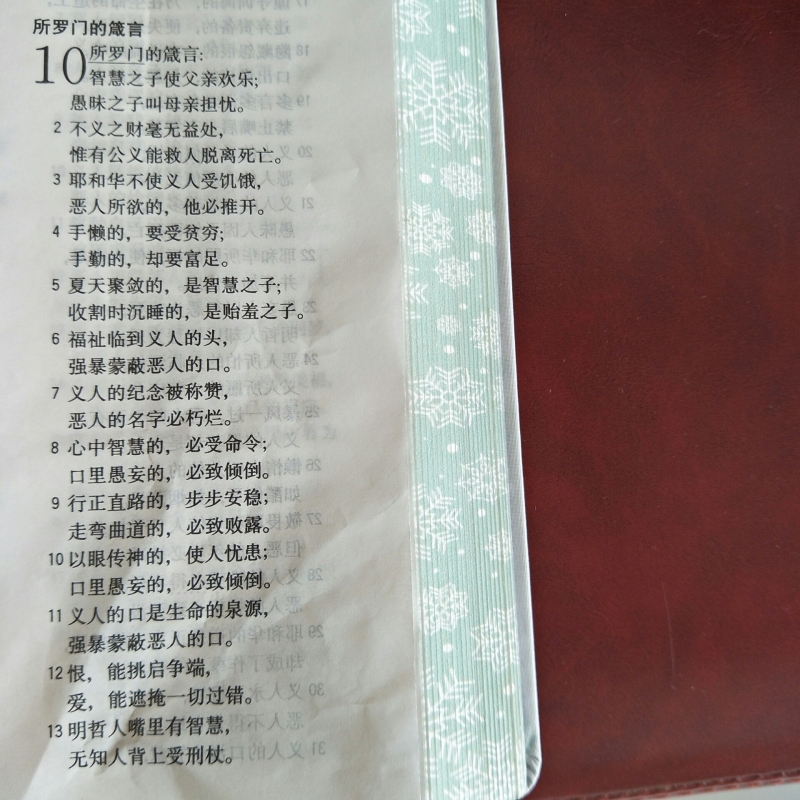 所罗门的箴言
10 所罗门的箴言:
智慧之子使父亲欢乐;
愚昧之子叫母亲担忧。
2 不义之财毫无益处,
惟有公义能救人脱离死亡。
3 耶和华不使义人受饥饿,
恶人所欲的, 他必推开。
4 手懒的, 要受贫穷;
手勤的, 却要富足。
5 夏天聚敛的, 是智慧之子;
收割时沉睡的, 是贻羞之子。
6 福祉临到义人的头,
强暴蒙蔽恶人的口。
7 义人的纪念被称赞,
恶人的名字必朽烂。
8 心中智慧的, 必受命令;
口里愚妄的, 必致倾倒。
9 行正直路的, 步步安稳;
走弯曲道的, 必致败露。
10 以眼传神的, 使人忧患;
口里愚妄的, 必致倾倒。
11 义人的口是生命的泉源,
强暴蒙蔽恶人的口。
12 恨, 能挑启争端,
爱, 能遮掩一切过错。
13 明哲人嘴里有智慧,
无知人背上受刑杖。